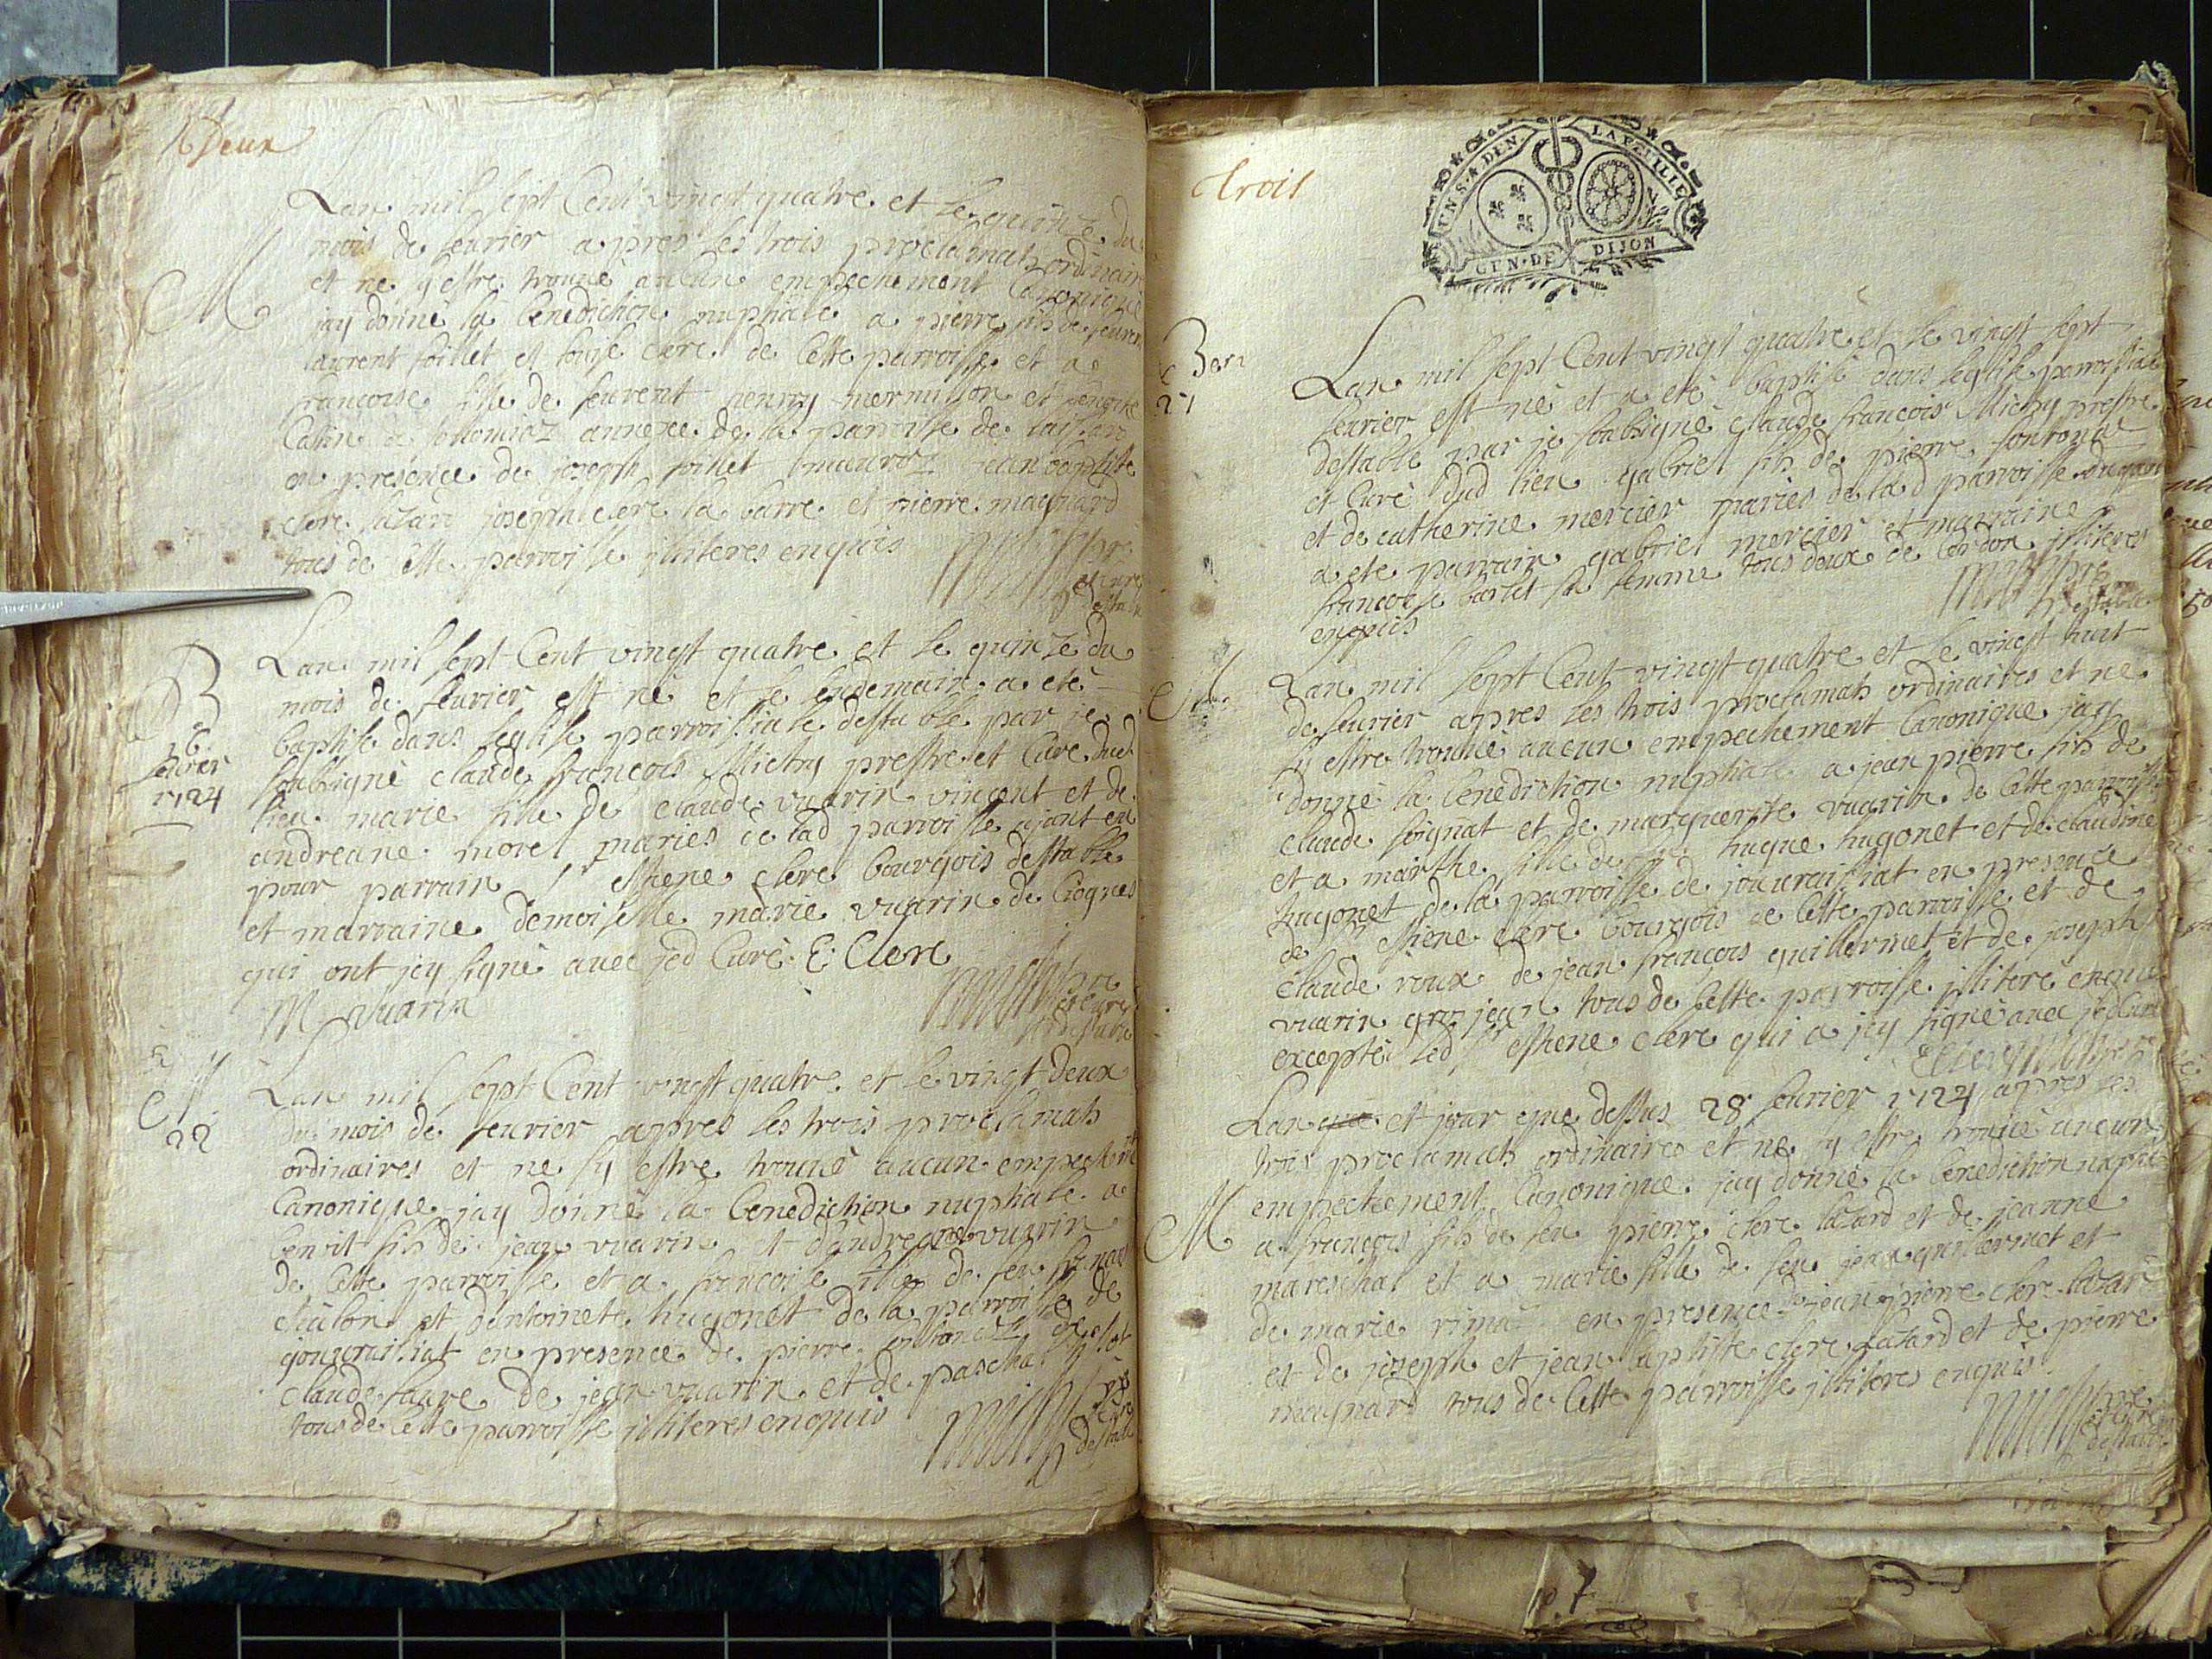 Deux
Lan mil sept Cent vingt quatre et le quinze du
mois de feurier apres les trois proclamats ordinaires
et ne sy estre trouué aucun empechement Canonique
jay donné la benediction nuptiale a pierre fils de feurent
laurent foillet et louise clerc de cette parroisse et a
francoise fille de feurent henry mermillon et
annexe de la parroisse de
en presence de joseph foillet jean baptiste
clerc lazard joseph clerc la barre et pierre magnard
tous de cette parroisse illiteres enquis
M
B
16
feurier
1724
Lan mil sept Cent vingt quatre et le quinze du
mois de feurier est né et le lendemain a eté
baptisé dans leglise parroissiale destable par je
soubsigné claude francois Michy prestre et Curé dud
lieu marie fille de claude vuarin vincent et de
andreane morel mariés de lad parroisse ajant eu
pour parrain sr estiene clerc bourgois destable
et marraine demoiselle marie vuarin de Crognes
qui ont jcy signé auec jed Curé E: Clerc
M vuarin
M
22
Lan mil sept Cent vingt quatre et le vingt deux
du mois de feurier apres les trois proclamats
ordinaires et ne sy estre trouué aucun empechemt
Canonique jay donné la benediction nuptiale a
benoit fils de jean vuarin et dandreane vuarin
de cette parroisse et a francoise fille de feu
chalon et dantoinete hugonet de la parroisse de
jouuraissiat en presence de pierre de
claude faure de jean vuarin et de paschal
tous de cette parroisse illiteres enquis
trois
UN S. 4 DEN. LA FEUILLE
GEN. DE DIJON
B
27
Lan mil sept Cent vingt quatre et le vingt sept
feurier est né et a eté baptisé dans leglise parroissiale
destable par je soubsigné claude francois Michy prestre
et Curé dud lieu gabriel fils de pierre
et de catherine mercier mariés de lad parroisse duquel
a eté parrain gabriel mercier et marraine
francoise sa femme tous deux de Cordon illiteres
enquis
M
Lan mil sept Cent vingt quatre et le vingt huit
de feurier apres les trois proclamats ordinaires et ne
sy estre trouué aucun empechement Canonique jay
donné la benediction nuptiale a jean pierre fils de
claude soignat et de marguerite vuarin de cette parroisse
et a marthe fille de hugue hugonet et de claudine
hugonet de la parroisse de jouuraissiat en presence
de sr estiene clerc bourgois de cette parroisse et de
claude roux de jean francois guillermet et de joseph
vuarin gros jean tous de cette parroisse illiteré enquis
excepté led sr estiene clerc qui a jcy signé auec jed Curé
E Clerc
Lan et jour que dessus 28 feurier 1724 apres les
trois proclamats ordinaires et ne sy estre trouué aucun
empechement Canonique jay donné la benediction nuptiale
M
a francois fils de feu pierre clerc lazard et de jeanne
mareschal et a marie fille de feu jean guillermet et
de marie en presence de jean pierre clerc lazard
et de joseph et jean baptiste clerc lazard et de pierre
magnard tous de cette parroisse illiteres enquis
7